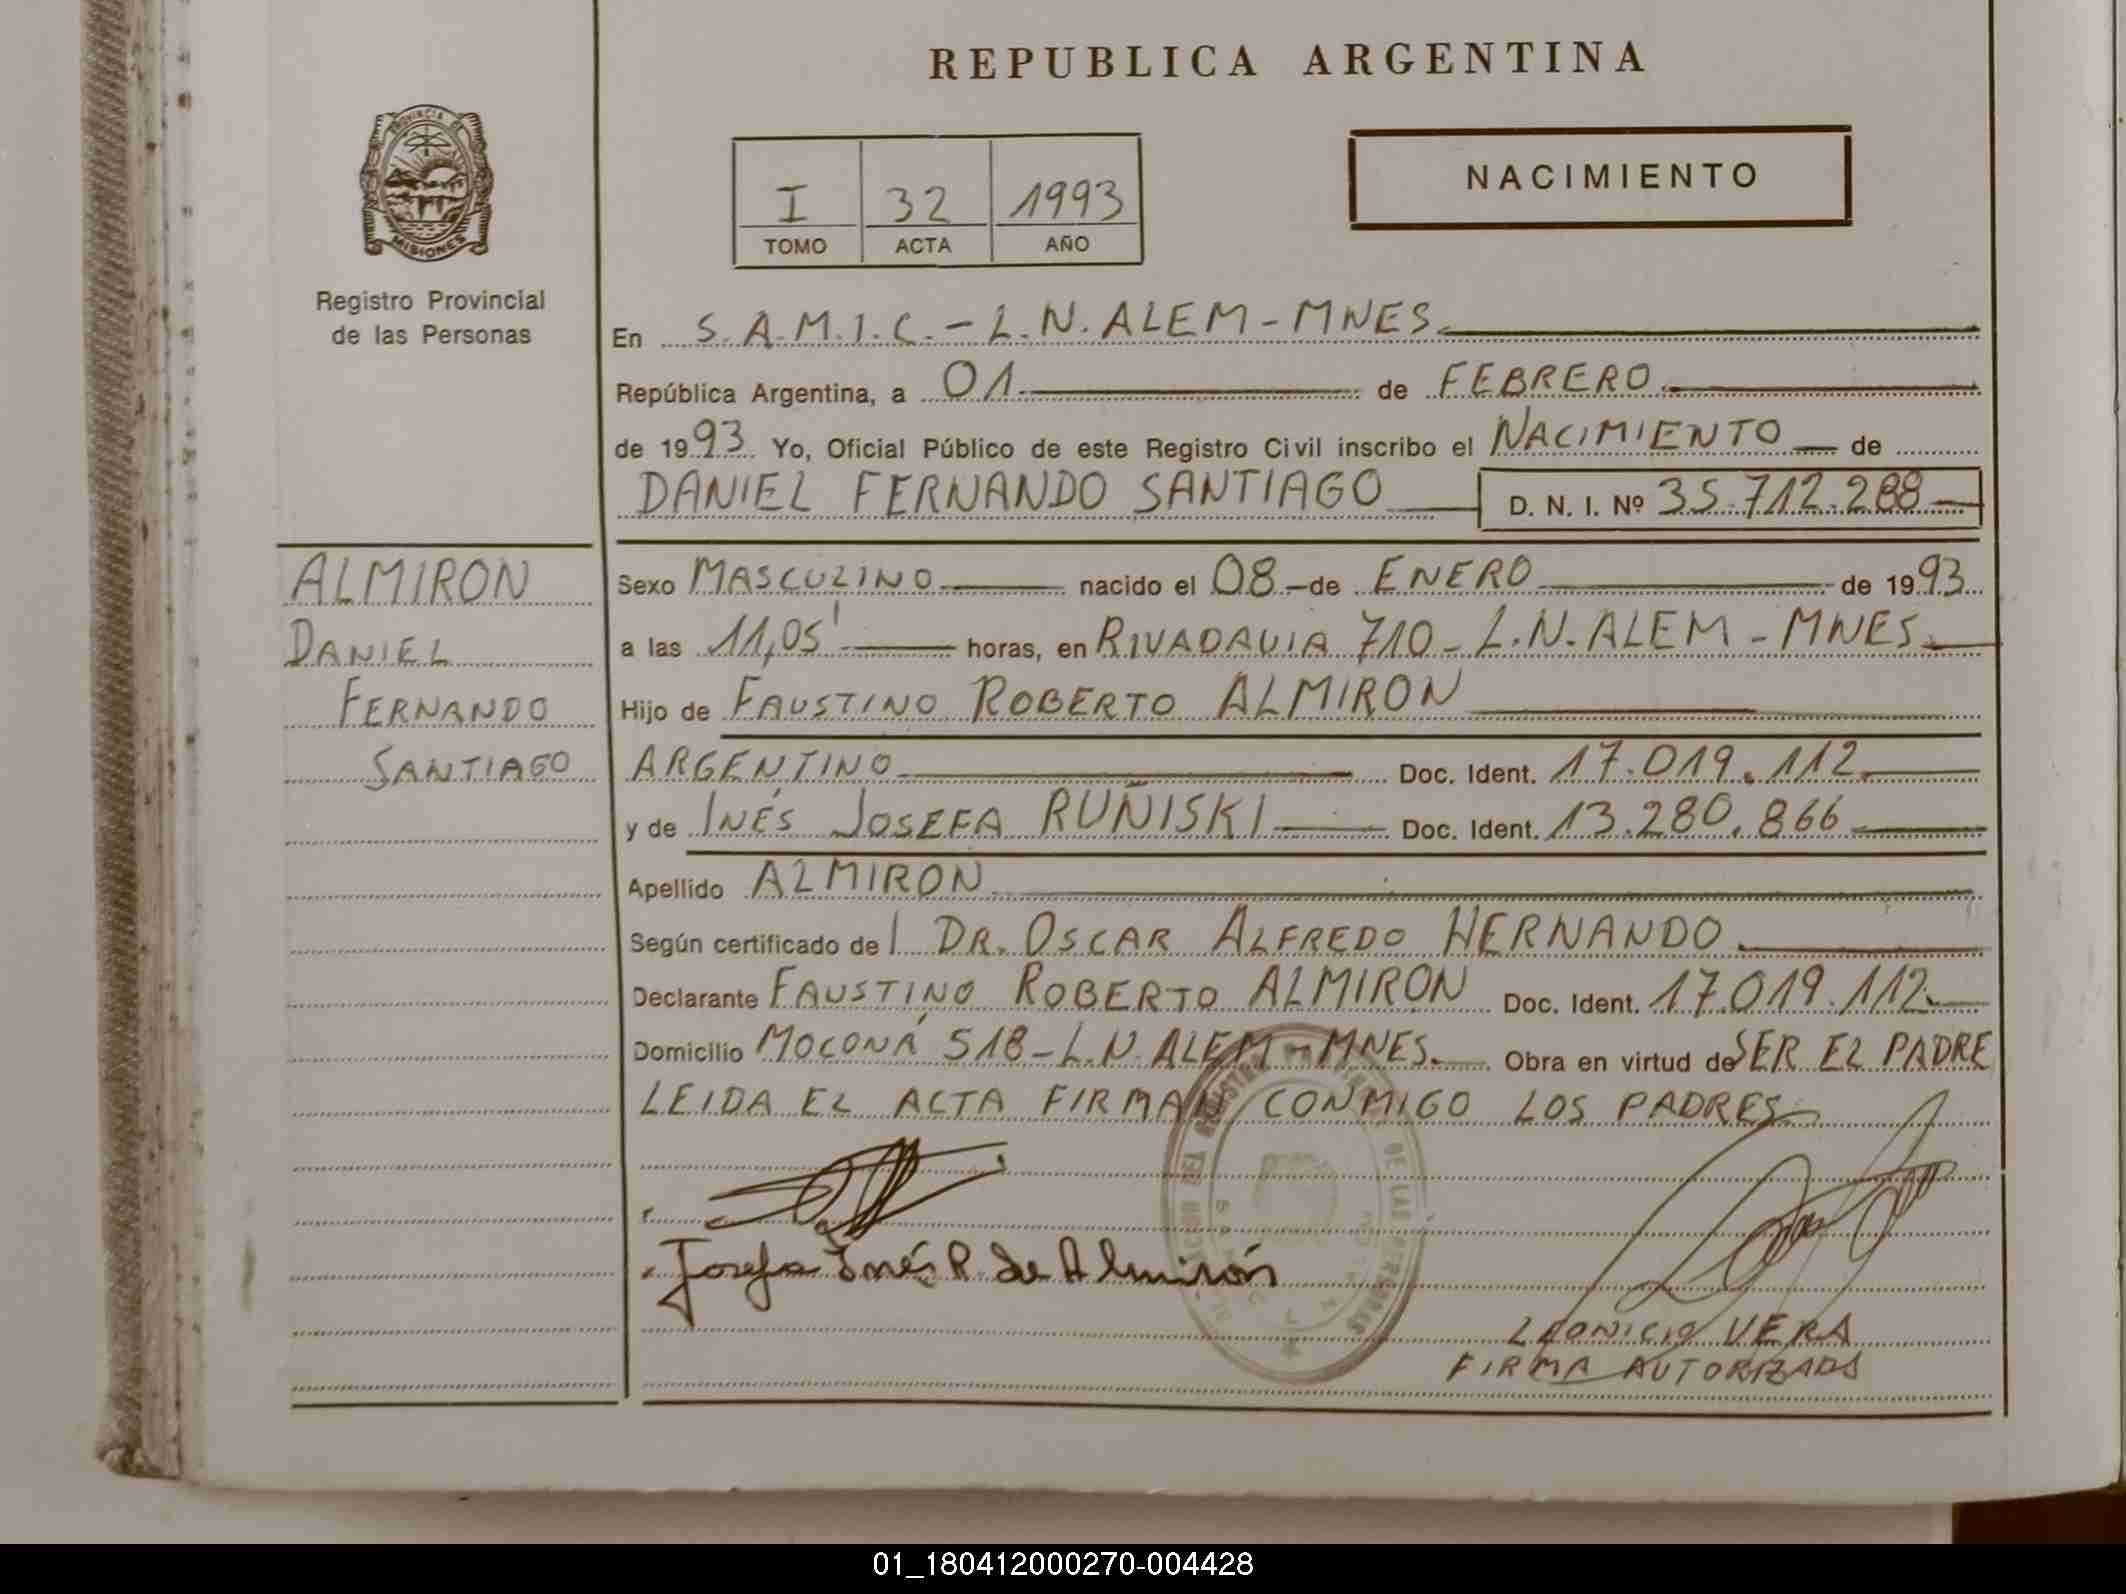 REPUBLICA ARGENTINA
PROVINCIA DE
MISIONES
Registro Provincial
de las Personas
I 32 1993
TOMO ACTA AÑO
NACIMIENTO
En S.A.M.I.C.-L.N.ALEM-MNES.
República Argentina, a 01 de FEBRERO
de 1993 Yo, Oficial Público de este Registro Civil inscribo el NACIMIENTO de
DANIEL FERNANDO SANTIAGO D. N. I. Nº 35.712.288
ALMIRON
DANIEL
FERNANDO
SANTIAGO
Sexo MASCULINO nacido el 08 de ENERO de 1993
a las 11,05' horas, en RIVADAVIA 710-L.N.ALEM-MNES.
Hijo de FAUSTINO ROBERTO ALMIRON
ARGENTINO Doc. Ident. 17.019.112
y de INÉS JOSEFA RUÑISKI Doc. Ident. 13.280.866
Apellido ALMIRON
Según certificado del DR. OSCAR ALFREDO HERNANDO
Declarante FAUSTINO ROBERTO ALMIRON Doc. Ident. 17.019.112
Domicilio MOCONÁ 518-L.N.ALEM-MNES. Obra en virtud de SER EL PADRE
LEIDA EL ACTA FIRMAN CONMIGO LOS PADRES
Josefa Inés R de Almirón
LEONICIO VERA
FIRMA AUTORIZADA
01_180412000270-004428